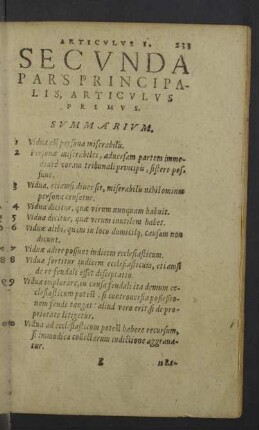 ARTICVLVS I. 233
SECVNDA
PARS PRINCIPA-
LIS, ARTICVLVS
PRIMVS.
SVMMARIVM.
1 Vidua est persona miserabilis.
2 Personæ miserabiles, aduersam partem imme
diatè coram tribunali principis, sistere pos-
sunt.
3 Vidua, etiamsi diues sit, miserabilis nihilominus
persona censetur.
4 Vidua dicitur, quæ virum nunquam habuit.
5 Vidua dicitur, quæ virum inutilem habet.
6 Viduæ alibi, quàm in loco domicilij, causam non
dicunt.
7 Viduæ adire possunt iudicem ecclesiasticum.
8 Vidua sortitur iudicem ecclesiasticum, etiamsi
de re feudali esset disceptatio.
9 Vidua implorare, in causa feudali ita demum ec-
clesiasticum potest, si controuersia possessio-
nem feudi tangat: aliud verò erit si de pro-
prietate litigetur.
10 Vidua ad ecclesiasticum potest habere recursum,
si immodica collectarum indictione aggraua-
tur.